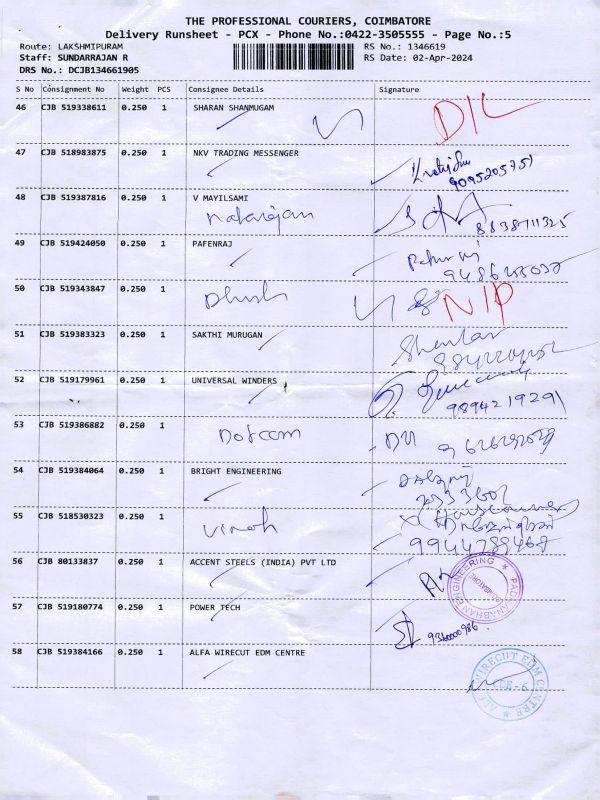 THE PROFESSIONAL COURIERS, COIMBATORE
Delivery Runsheet - PCX - Phone No.:0422-3505555 - Page No.:5
Route: LAKSHMIPURAM
RS No.: 1346619
Staff: SUNDARRAJAN R
RS Date: 02-Apr-2024
DRS No.: DCJB134661905
S No Consignment No Weight PCS Consignee Details Signature
46 CJB 519338611 0.250 1 SHARAN SHANMUGAM D/L
47 CJB 518983875 0.250 1 NKV TRADING MESSENGER
9095205751
48 CJB 519387816 0.250 1 V MAYILSAMI
Natarajan 8838711325
49 CJB 519424050 0.250 1 PAFENRAJ
50 CJB 519343847 0.250 1 N/P
51 CJB 519383323 0.250 1 SAKTHI MURUGAN
52 CJB 519179961 0.250 1 UNIVERSAL WINDERS
9894219291
53 CJB 519386882 0.250 1 Dotcom
54 CJB 519384064 0.250 1 BRIGHT ENGINEERING
55 CJB 518530323 0.250 1 Vinoth
9944789468
56 CJB 80133837 0.250 1 ACCENT STEELS (INDIA) PVT LTD
PADMANABHAN ENGINEERING
57 CJB 519180774 0.250 1 POWER TECH
9360000986
58 CJB 519384166 0.250 1 ALFA WIRECUT EDM CENTRE
ALFA WIRECUT EDM CENTRE
CBE-6